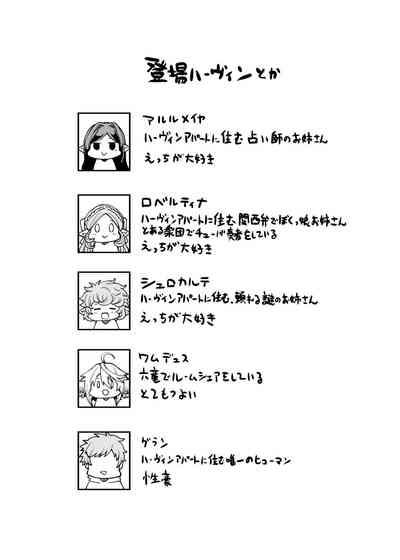 登場ハーヴィンとか
アルルメイヤ
ハーヴィンアパートに住む占い師のお姉さん
えっちが大好き
ロベルティナ
ハーヴィンアパートに住む関西弁でぼくっ娘お姉さん
とある楽団でチューバ奏者をしている
えっちが大好き
シェロカルテ
ハーヴィンアパートに住む、頼れる謎のお姉さん
えっちが大好き
ワムデュス
六竜でルームシェアをしている
とてもつよい
グラン
ハーヴィンアパートに住む唯一のヒューマン
性豪